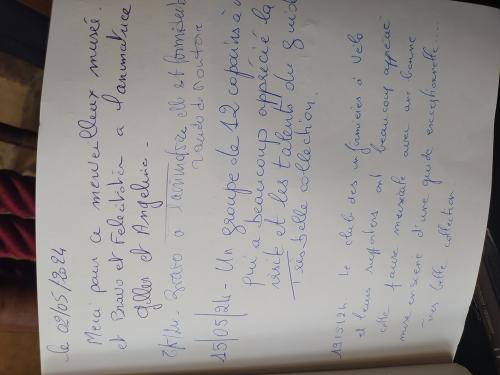 le 02/05/2024
Merci pour ce merveilleux musée.
et Bravo et Félicitation à l'animatrice
Gilles et Angeline.
Bravo à l'animatrice elle est formidable
Rando de Montoire
15/05/24 - Un groupe de 12 copains à
qui a beaucoup apprécié la
visite et les talents du guide
Très belle collection.
le club des infirmiers à Vélo
et leurs supporters ont beaucoup apprécié
cette pause musicale avec une bonne
mise en scène d'une guide exceptionnelle...
très belle collection